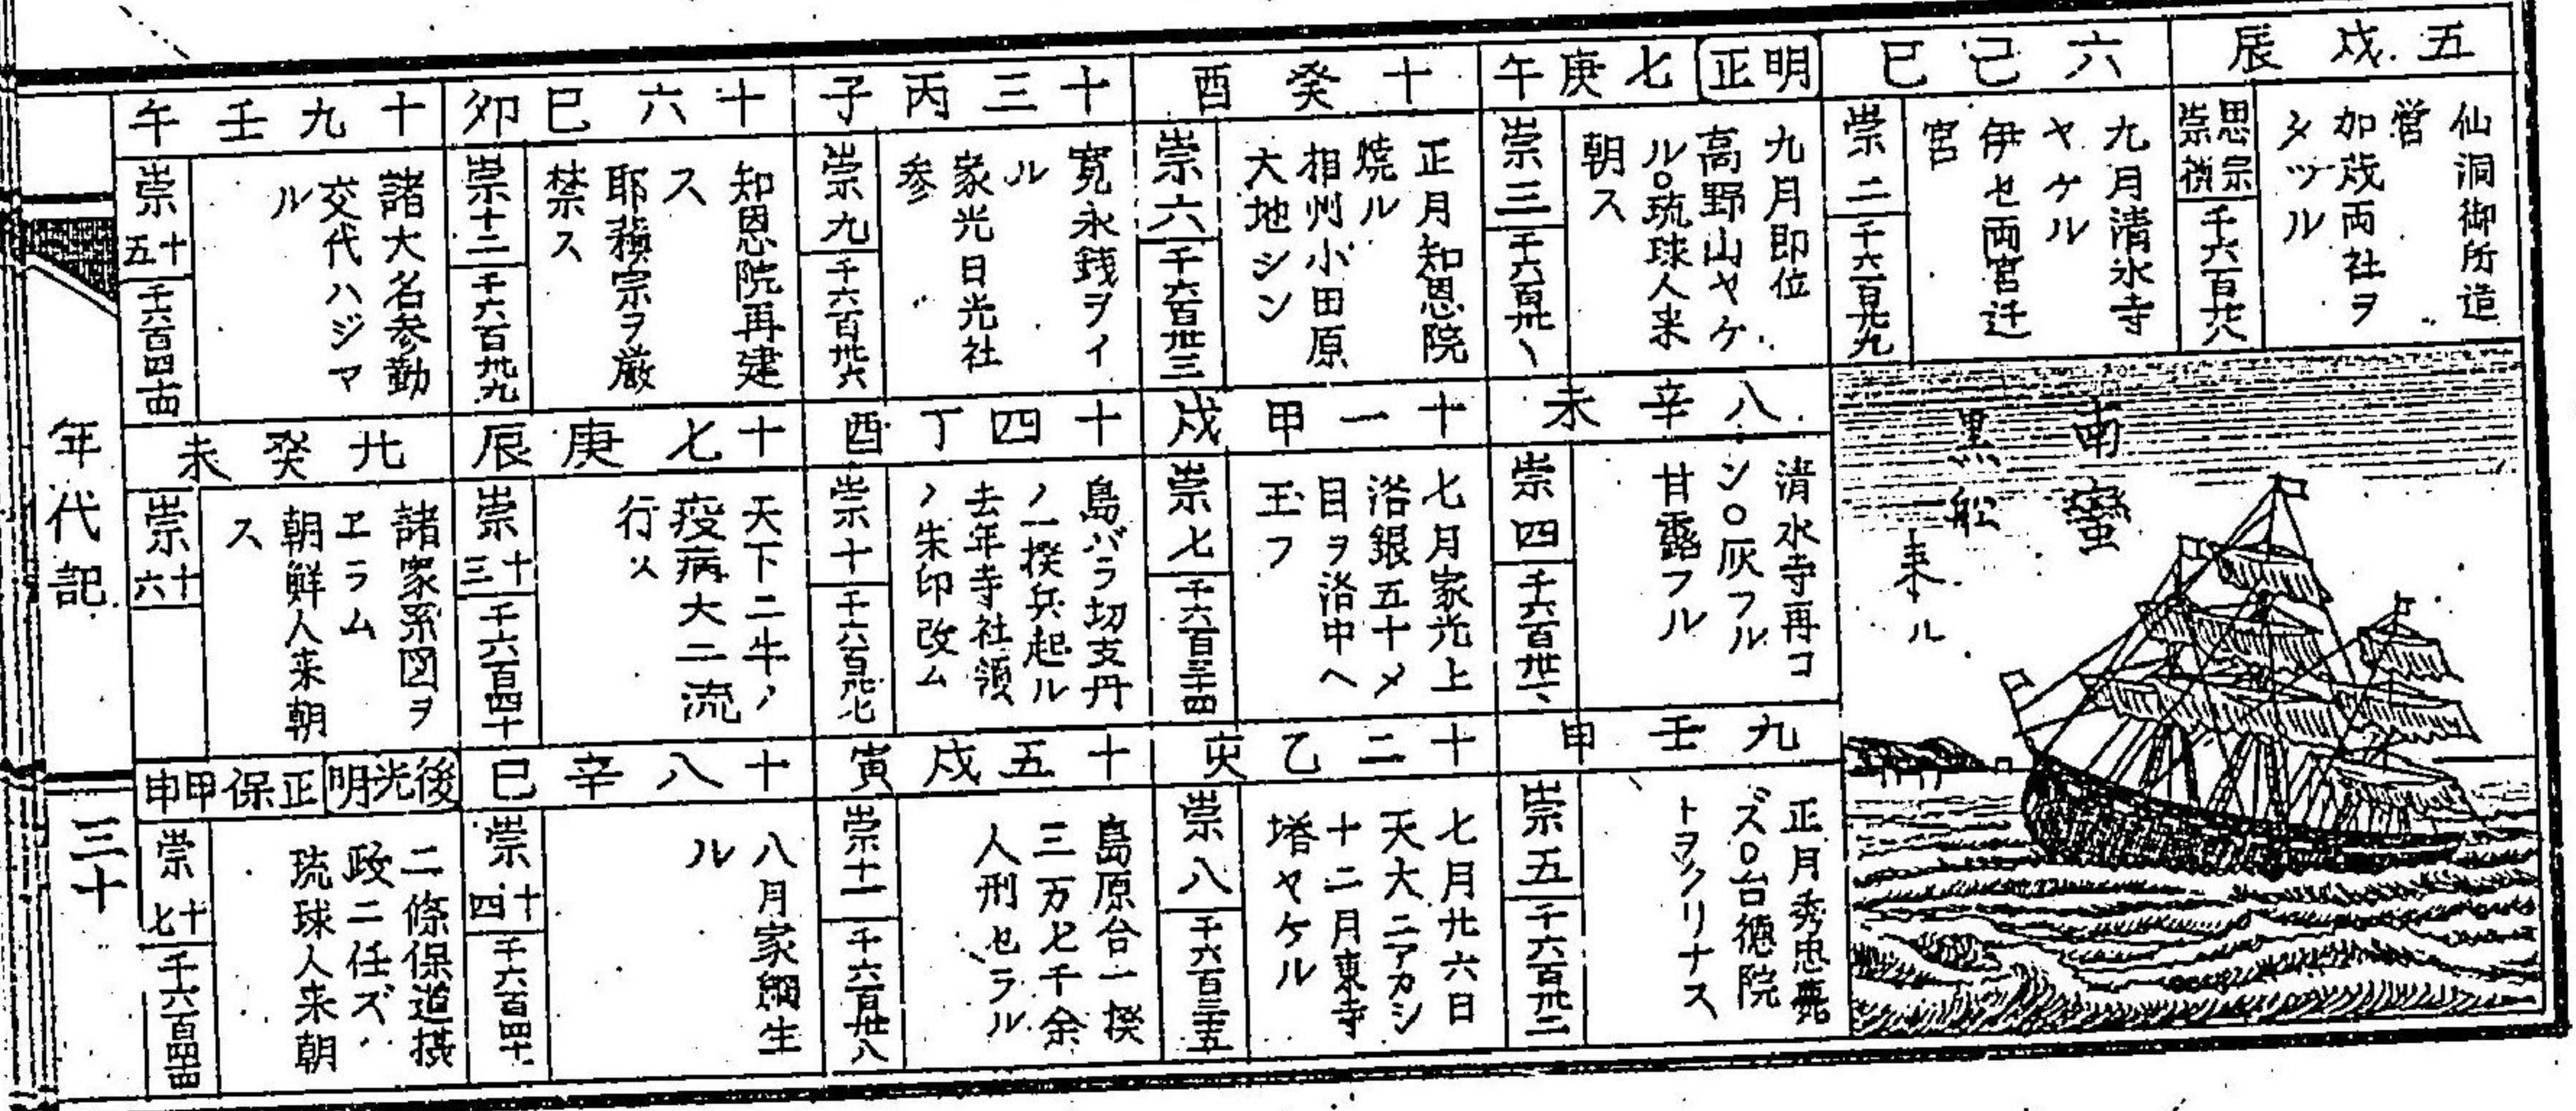 五戊辰
仙洞御所造
営
加茂両社ヲ
タツル
思宗
崇禎
千六百廿八
六己巳
九月清水寺
ヤケル
伊セ両宮迁
宮
崇二
千六百廿九
明正
七庚午
九月即位
高野山ヤケ
ル○琉球人来
朝ス
崇三
千六百卅、
八辛未
清水寺再コ
ン○灰フル
甘露フル
崇四
千六百卅一、
九壬申
正月秀忠薨
ズ○台徳院
トヲクリナス
崇五
千六百卅二
十癸酉
正月知恩院
焼ル
相州小田原
大地シン
崇六
千六百卅三
十一甲戌
七月家光上
洛銀五十〆
目ヲ洛中ヘ
玉フ
崇七
千六百三十四
十二乙亥
七月廿六日
天大ニアカシ
十二月東寺
塔ヤケル
崇八
千六百三十五
十三丙子
寛永銭ヲイ
ル
家光日光社
参
崇九
千六百卅六
十四丁酉
島バラ切支丹
ノ一揆兵起ル
去年寺社領
ノ朱印改ム
崇十
千六百卅七
十五戊寅
島原合一揆
三万七千余
人刑セラル
崇十一
千六百卅八
十六巳卯
知恩院再建
ス
耶蘇宗ヲ厳
禁ス
崇十二
千六百卅九
十七庚辰
天下ニ牛ノ
疫病大ニ流
行ス
崇十三
千六百四十
十八辛巳
八月家綱生
ル
崇十四
千六百四十一
十九壬午
諸大名参勤
交代ハジマ
ル
崇十五
千六百四十二
廿癸未
諸家系図ヲ
ヱラム
朝鮮人来朝
ス
崇十六
後光明
正保甲申
二條保道摂
政ニ任ズ
琉球人来朝
崇十七
千六百四十四
南蛮
黒船
来ル
年代記
三十